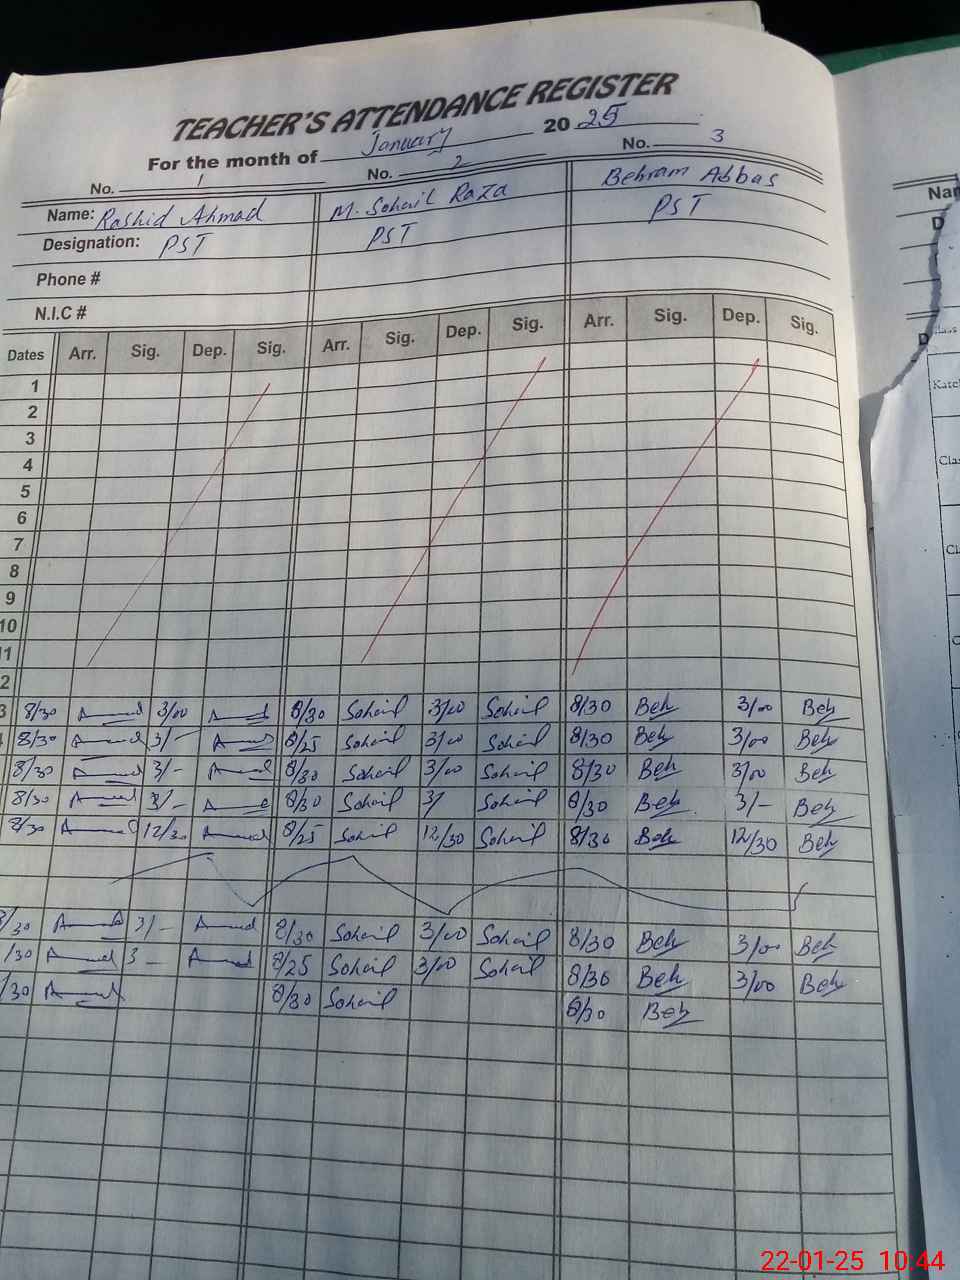 TEACHER'S ATTENDANCE REGISTER
For the month of January 2025
No. 1 No. 2 No. 3
Name: Rashid Ahmad M. Sohail Raza Behram Abbas
Designation: PST PST PST
Phone #
N.I.C #
Dates Arr. Sig. Dep. Sig. Arr. Sig. Dep. Sig. Arr. Sig. Dep. Sig.
1
2
3
4
5
6
7
8
9
10
11
2
3 8/30 3/00 8/30 Sohail 3/00 Sohail 8/30 Beh 3/00 Beh
8/30 3/- 8/25 Sohail 3/00 Sohail 8/30 Beh 3/00 Beh
8/30 3/- 8/30 Sohail 3/00 Sohail 8/30 Beh 3/00 Beh
8/30 3/- 8/30 Sohail 3/ Sohail 8/30 Beh 3/- Beh
8/30 12/30 8/25 Sohail 12/30 Sohail 8/30 Beh 12/30 Beh
8/30 3/- 8/30 Sohail 3/00 Sohail 8/30 Beh 3/00 Beh
/30 3- 8/25 Sohail 3/00 Sohail 8/30 Beh 3/00 Beh
/30 8/30 Sohail 8/30 Beh
Nar
D
D
Class
Katch
Clas
Cl
22-01-25 10:44